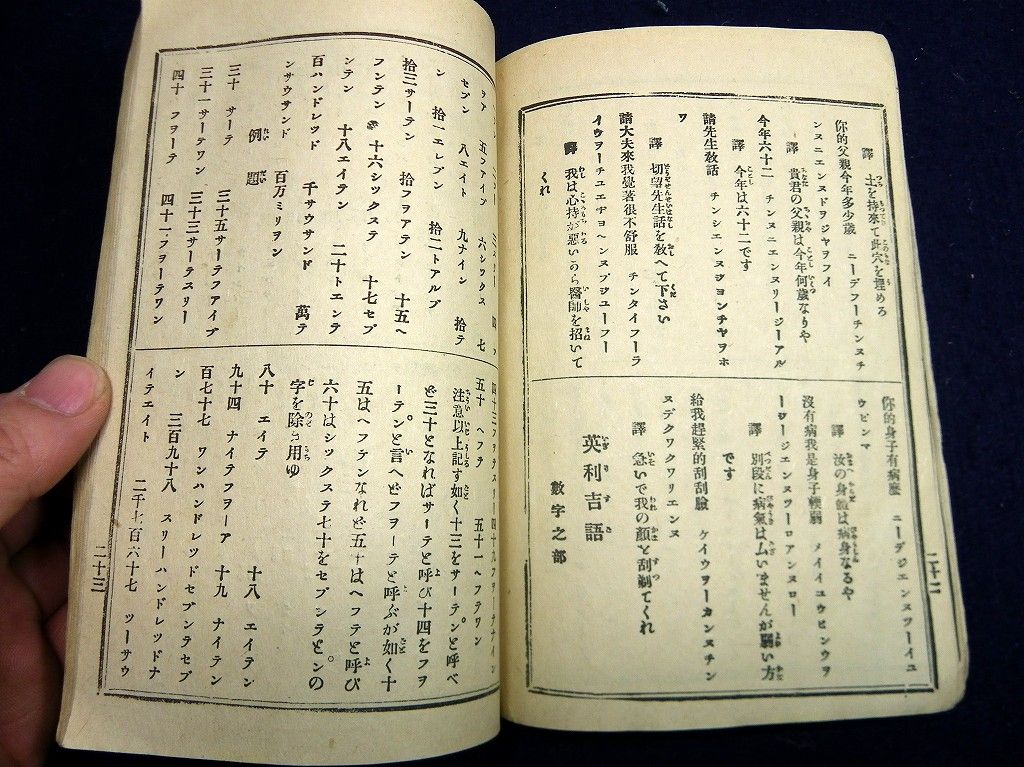 譯 土を持來て此穴を埋めろ
你的父親今年多少歲 ニーデフーチンヌチ
ンヌニエンヌドヲジヤヲフイ
譯 貴君の父親は今年何歲なりや
今年六十二 チンヌニエンヌリージーアル
譯 今年は六十二です
請先生敎話 チンシエンヌヨンチヤヲホ
ワ
譯 切望先生話を敎へて下さい
請大夫來我覺著很不舒服 チンタイフーラ
イウヲーチユエヂヨヘンヌプシユーフー
譯 我は心持が惡いから醫師を招いて
くれ
你的身子有病麽 ニーデジエンヌツーイユ
ウビンマ
譯 汝の身體は病身なるや
沒有病我是身子輭弱 メイイユウヒンウヲ
ージエンヌツーロアンヌロー
譯 別段に病氣はムいませんが弱い方
です
給我趕緊的刮刮臉 ケイウヲーカンヌチン
ヌデクワクワリエンヌ
譯 急いで我の顏と刮剃てくれ
英利吉語
數字之部
二十二
五ファイン 六シックス 七
セブン 八エイト 九ナイン 拾テ
ン 拾一エレブン 拾二トアルブ
拾三サーテン 拾フヲアテン 十五ヘ
フンテン 十六シックステ 十七セブ
ンテン 十八エイテン 二十トエンテ
百ハンドレツド 千サウサンド 萬テ
ンサウサンド 百万ミリヲン
例題
三十 サーテ 三十五サーテフアイブ
三十一サーテワン 三十三サーテスリー
四十 フヲーテ 四十一フヲーテワン
四十三フヲテスリー 四十九フヲーテナイン
五十 ヘフテ 五十一ヘフテワン
注意以上記す如く十三をサーテンと呼べ
ど三十となればサーテと呼び十四をフヲ
ーテンと言へどフヲーテと呼ぶが如く十
五はヘフテンなれど五十はヘフテと呼び
六十はシックステ七十をセブンテとンの
字を除き用ゆ
八十 エイテ 十八 エイテン
九十四 ナイテフヲーア 十九 ナイテン
百七十七 ワンハンドレツドセブンテセブ
ン 三百九十八 スリーハンドレツドナ
イテエイト 二千七百六十七 ツーサウ
二十三